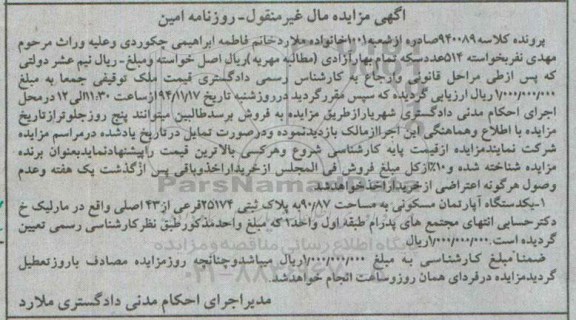 آگهی مزایده مال غیرمنقول-روزنامه امین
پرونده کلاسه ۹۴۰۰۸۹صادره ازشعبه۱۰۱خانواده ملاردخانم فاطمه ابراهیمی چکوردی وعلیه وراث مرحوم
مهدی نفربخواسته ۵۱۴عددسکه تمام بهارآزادی (مطالبه مهریه)ریال اصل خواسته ومبلغ-ریال نیم عشر دولتی
که پس ازطی مراحل قانونی وارجاع به کارشناس رسمی دادگستری قیمت ملک توقیفی جمعا به مبلغ
۱/۰۰۰/۰۰۰/۰۰۰ریال ارزیابی گردیده که سپس مقررگردید درروزشنبه تاریخ ۹۴/۱۱/۱۷ازساعت ۱۱:۳۰الی۱۲ درمحل
اجرای احکام مدنی دادگستری شهریارازطریق مزایده به فروش برسدطالبین میتوانند پنج روزجلوترازتاریخ
مزایده با اطلاع وهماهنگی این اجراازمالک بازدیدنموده ودرصورت تمایل درتاریخ یادشده درمراسم مزایده
شرکت نمایندمزایده ازقیمت پایه کارشناسی شروع وهرکسی بالاترین قیمت راپیشنهادنمایدبعنوان برنده
مزایده شناخته شده و۱۰٪ازکل مبلغ فروش فی المجلس ازخریداراخذوباقی پس ازگذشت یک هفته وعدم
وصول هرگونه اعتراضی ازخریداراخذخواهدشد.
۱-یکدستگاه آپارتمان مسکونی به مساحت ۹۰/۸۷به پلاک ثبتی ۲۵۱۷۴فرعی از۴۳ اصلی واقع در مارلیک خ
دکترحسابی انتهای مجتمع های پدرام طبقه اول واحد۱که مبلغ واحدمذکورطبق نظرکارشناسی رسمی تعیین
گردیده است.۱/۰۰۰/۰۰۰/۰۰۰ریال
ضمنامبلغ کارشناسی به مبلغ ۱/۰۰۰/۰۰۰/۰۰۰ریال میباشدوچنانچه روزمزایده مصادف باروزتعطیل
گردیدمزایده درفردای همان روزوساعت انجام خواهدشد.
مدیراجرای احکام مدنی دادگستری ملارد